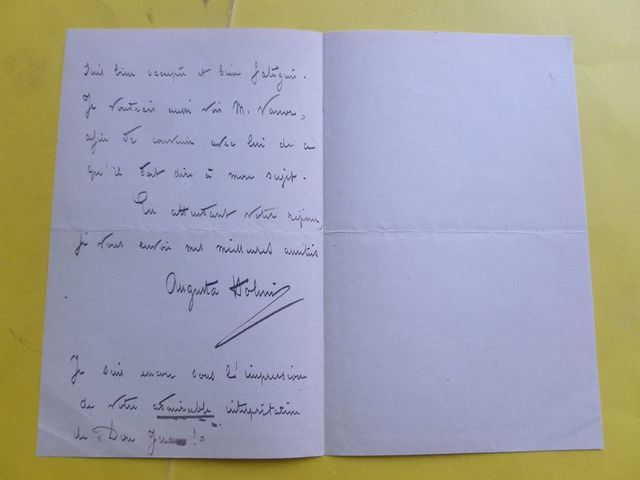 suis bien occupée et bien fatiguée.
Je voudrais aussi voir M.
afin de convenir avec lui de ce
qu'il doit dire à mon sujet.
En attendant votre réponse,
je vous envoie mes meilleures amitiés
Augusta Holmès
Je suis encore sous l'impression
de votre admirable interprétation
de "Don Juan!"